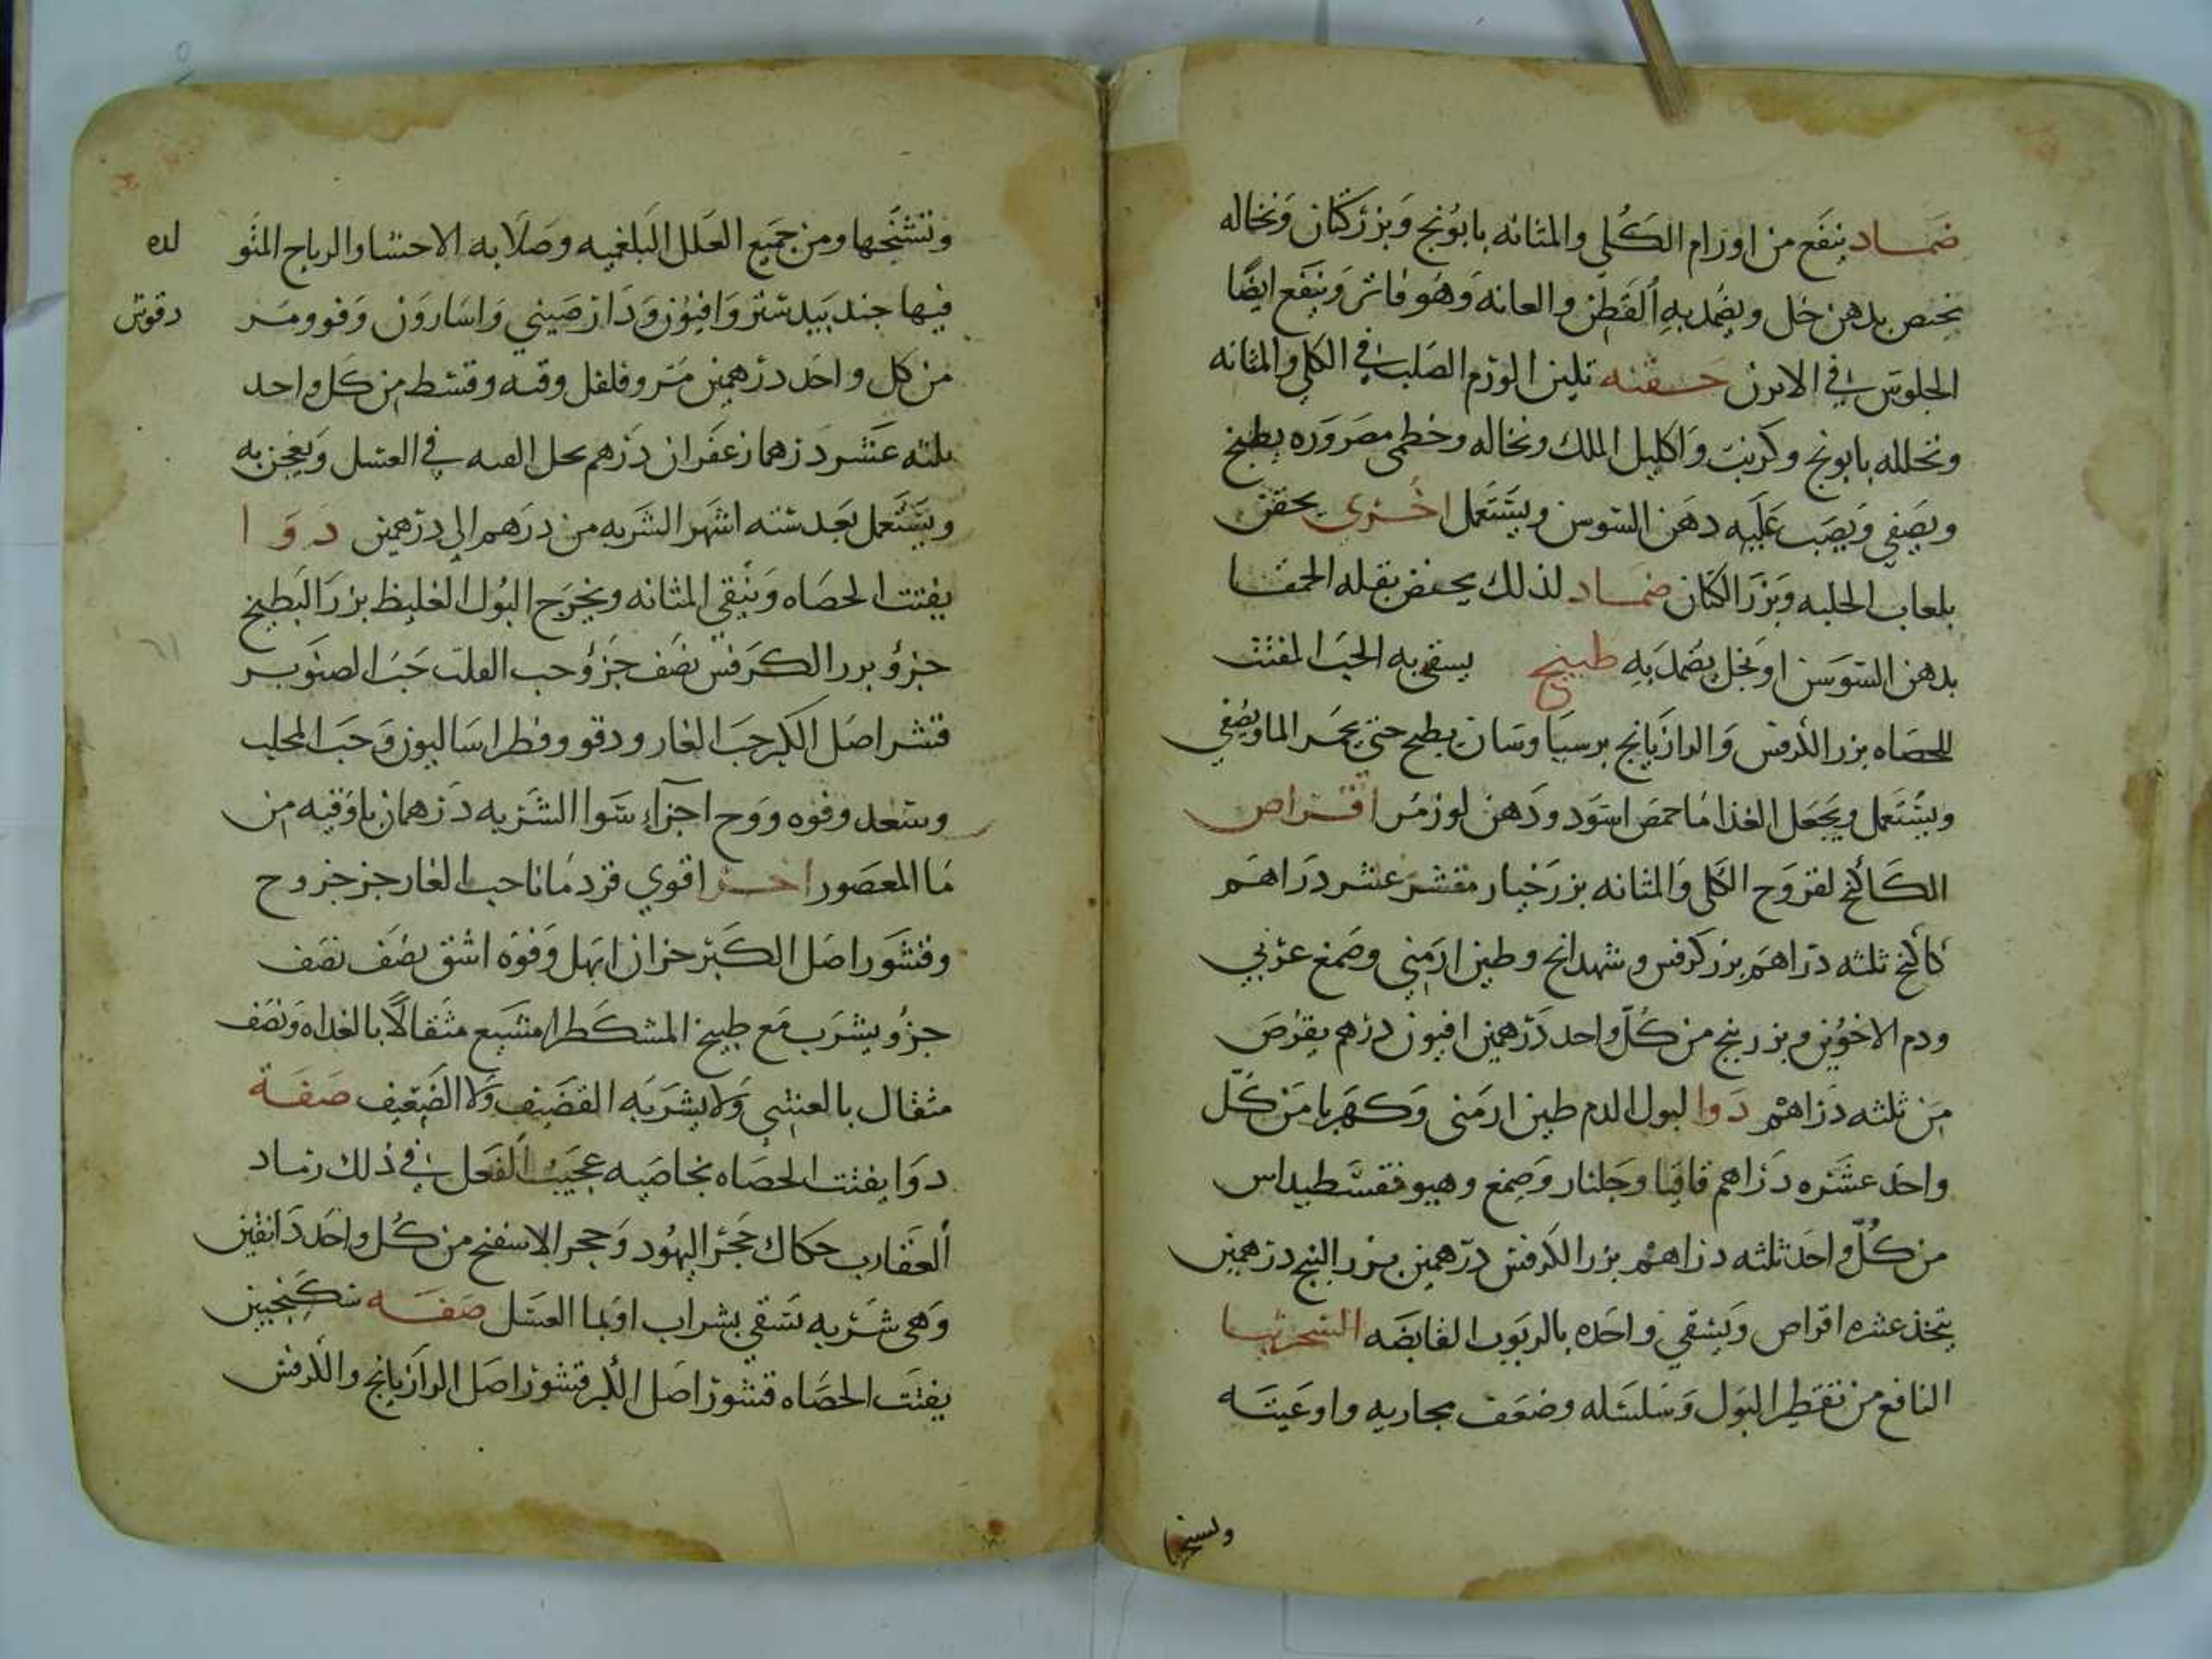 ضماد ينفع من اورام الكلي والمثانه بابونج وبزركتان ونخاله
بدهن خل ويضمد به القطن والعانه وهو فاتر وينفع ايضا
الجلوس في الابزن حقنه تلين الورم الصلب في الكلي والمثانه
وتحلله بابونج وكرنب واكليل الملك ونخاله وخطمي مصروره يطبخ
ويصفي ويصب عليه دهن السوسن ويستعمل اخري يحقن
بلعاب الحلبه وبزر الكتان ضماد لذلك بقله الحمقا
بدهن السوسن او بخل يضمد به طبيخ يسقي به الحب المفتت
للحصاه بزر الكرفس والرازيانج برسياوسان يطبخ حتي يحمر الما ويصفي
ويستعمل ويجعل الغذا ما حمص اسود ودهن لوز مر اقراص
الكاكنج لقروح الكلي والمثانه بزر خيار مقشر عشر دراهم
كاكنج ثلثه دراهم بزر كرفس وشهدانج وطين ارمني وصمغ عربي
ودم الاخوين وبزر بنج من كل واحد درهمين افيون درهم يقرص
من ثلثه دراهم دوا لبول الدم طين ارمني وكهربا من كل
واحد عشره دراهم قاقيا وجلنار وصمغ وهيوفقسطيداس
من كل واحد ثلثه دراهم بزر الكرفس درهمين بزر البنج درهمين
يتخذ عشره اقراص ويسقي واحده بالربوب القابضه السجرنيا
النافع من تقطير البول وسلسله وضعف مجاريه واوعيته
وتشنجها
وتشنجها ومن جميع العلل البلغميه وصلابه الاحشا والرياح المتو لده
فيها جندبيدستر وافيون ودارصيني واسارون وفو ومر دقوش
من كل واحد درهمين مر وفلفل وقنه وقسط من كل واحد
ثلثه عشر درهما زعفران درهم يحل القنه في العسل ويعجن به
ويستعمل بعد سته اشهر الشربه من درهم الي درهمين دوا
يفتت الحصاه وينقي المثانه ويخرج البول الغليظ بزر البطيخ
جزؤ بزر الكرفس نصف جزؤ حب القلت حب الصنوبر
قشر اصل الكبر حب الغار ودقو وفطراساليون وحب المحلب
وسعد وفوه ووج اجزاء سوا الشربه درهمان باوقيه من
ما المعصور اخر اقوي قردمانا حب الغار جز جز وج
وقشور اصل الكبر ابهل وفوه اشق نصف نصف
جزؤ يشرب مع طبيخ المشكطرامشيع مثقالا بالغداه ونصف
مثقال بالعشي ولا يشربه القضيف ولا الضعيف صفة
دوا يفتت الحصاه بخاصيه عجيب الفعل في ذلك رماد
العقارب حكاك حجر اليهود وحجر الاسفنج من كل واحد دانقين
وهي شربه تسقي بشراب او بما العسل صفه سكنجبين
يفتت الحصاه قشور اصل الكبر قشور اصل الرازيانج والكرفس